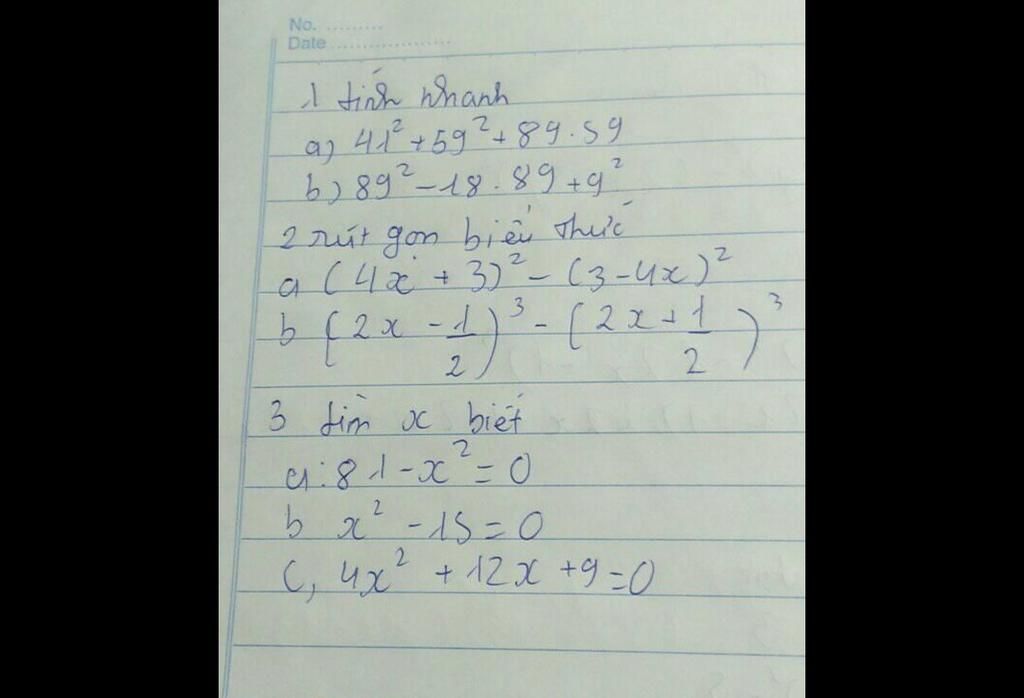 No. ..........
Date ......................
1 tính nhanh
a) 41² + 59² + 89.59
b) 89² - 18.89 + 9²
2 rút gọn biểu thức
a (4x + 3)² - (3 - 4x)²
b (2x - 1/2)³ - (2x + 1/2)³
3 tìm x biết
a: 81 - x² = 0
b x² - 15 = 0
c, 4x² + 12x + 9 = 0